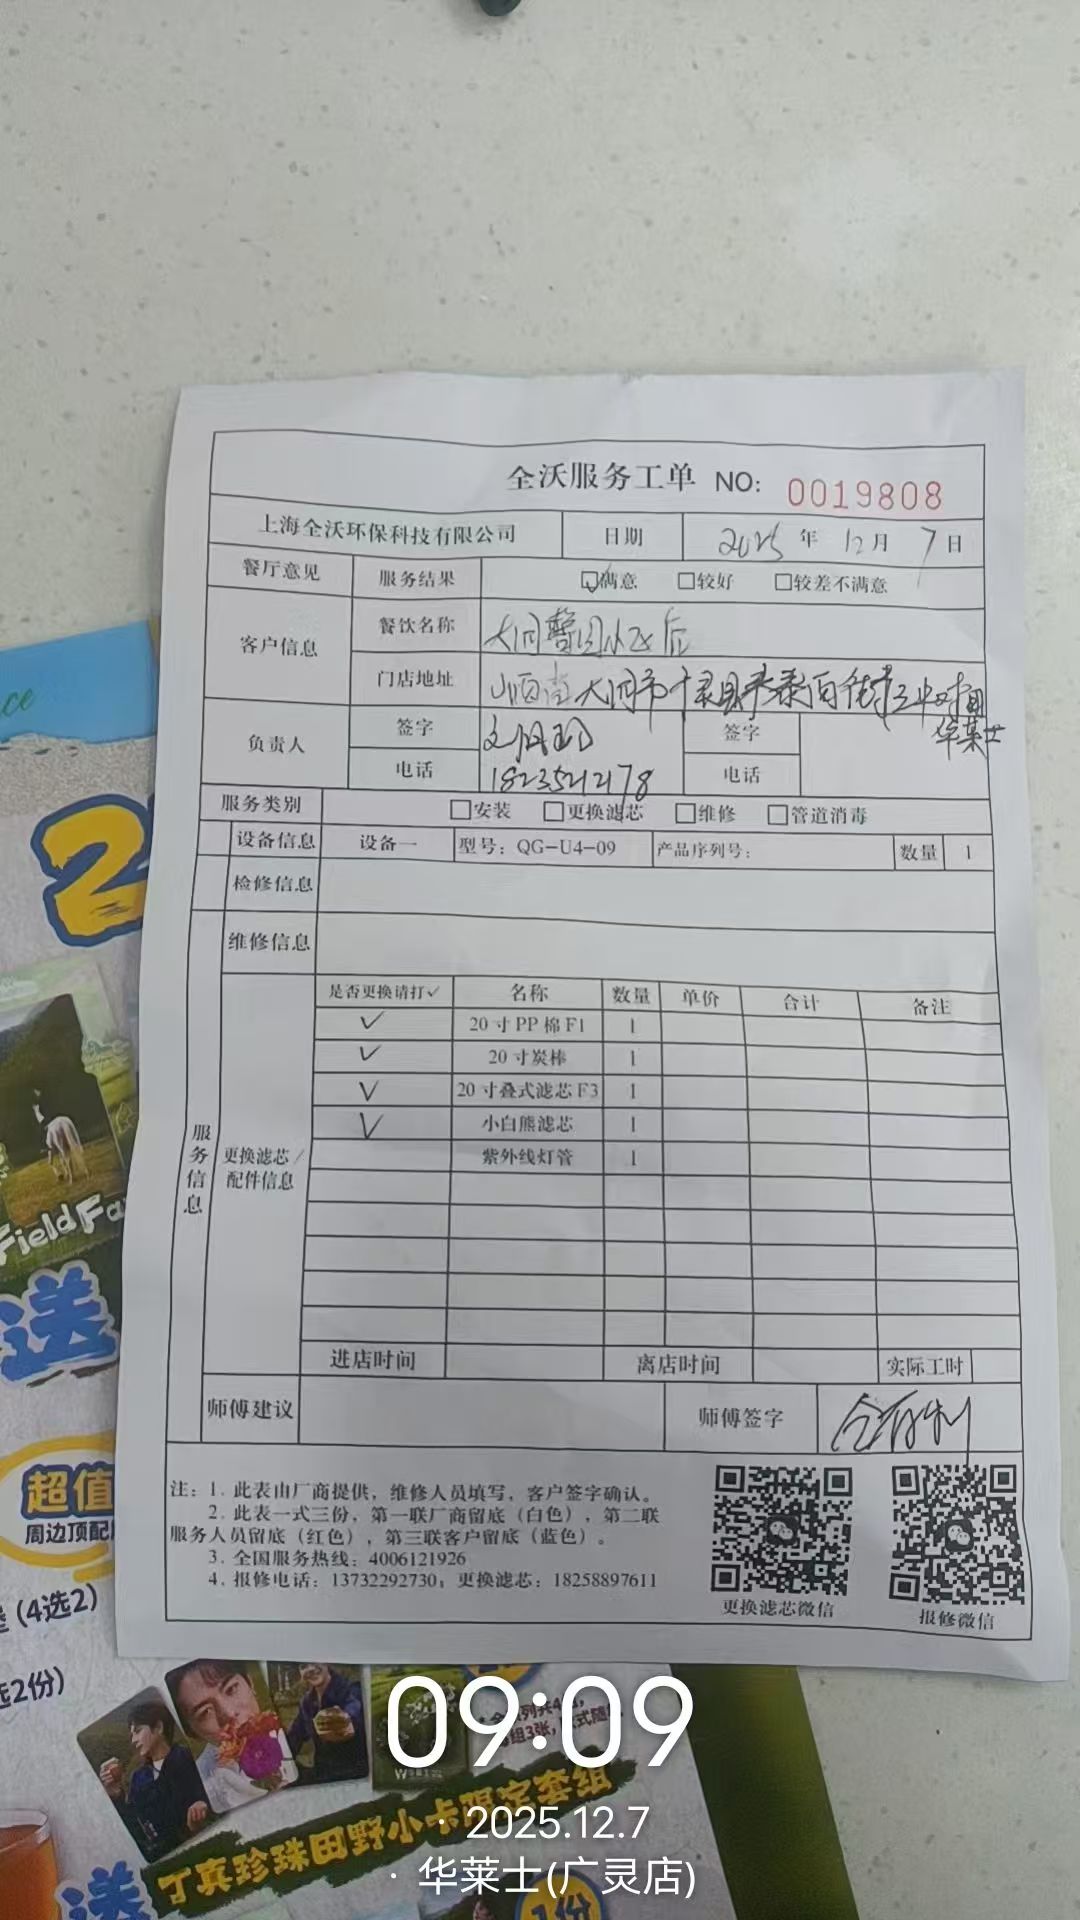 全沃服务工单 NO: 0019808
上海全沃环保科技有限公司 日期 2025 年 12 月 7 日
餐厅意见 服务结果 ☑满意 □较好 □较差不满意
客户信息 餐饮名称 大同
门店地址 大同市广灵县
华莱士
负责人 签字 签字
电话 18235212178 电话
服务类别 □安装 □更换滤芯 □维修 □管道消毒
设备信息 设备一 型号：QG-U4-09 产品序列号： 数量 1
检修信息
维修信息
服务信息
更换滤芯／
配件信息
是否更换请打✓ 名称 数量 单价 合计 备注
✓ 20寸PP棉F1 1
✓ 20寸炭棒 1
✓ 20寸叠式滤芯F3 1
✓ 小白熊滤芯 1
紫外线灯管 1
进店时间 离店时间 实际工时
师傅建议 师傅签字
注：1．此表由厂商提供，维修人员填写，客户签字确认。
2．此表一式三份，第一联厂商留底（白色），第二联
服务人员留底（红色），第三联客户留底（蓝色）。
3．全国服务热线：4006121926
4．报修电话：13732292730；更换滤芯：18258897611
更换滤芯微信 报修微信
ce
2
Field Fa
送
超值
周边顶配
(4选2)
选2份)
丁真珍珠田野小卡限定套组
送
1份
09:09
· 2025.12.7
· 华莱士(广灵店)